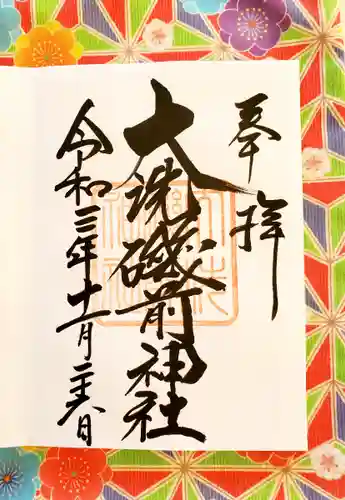 奉拝
大洗磯前神社
令和三年十一月二十八日